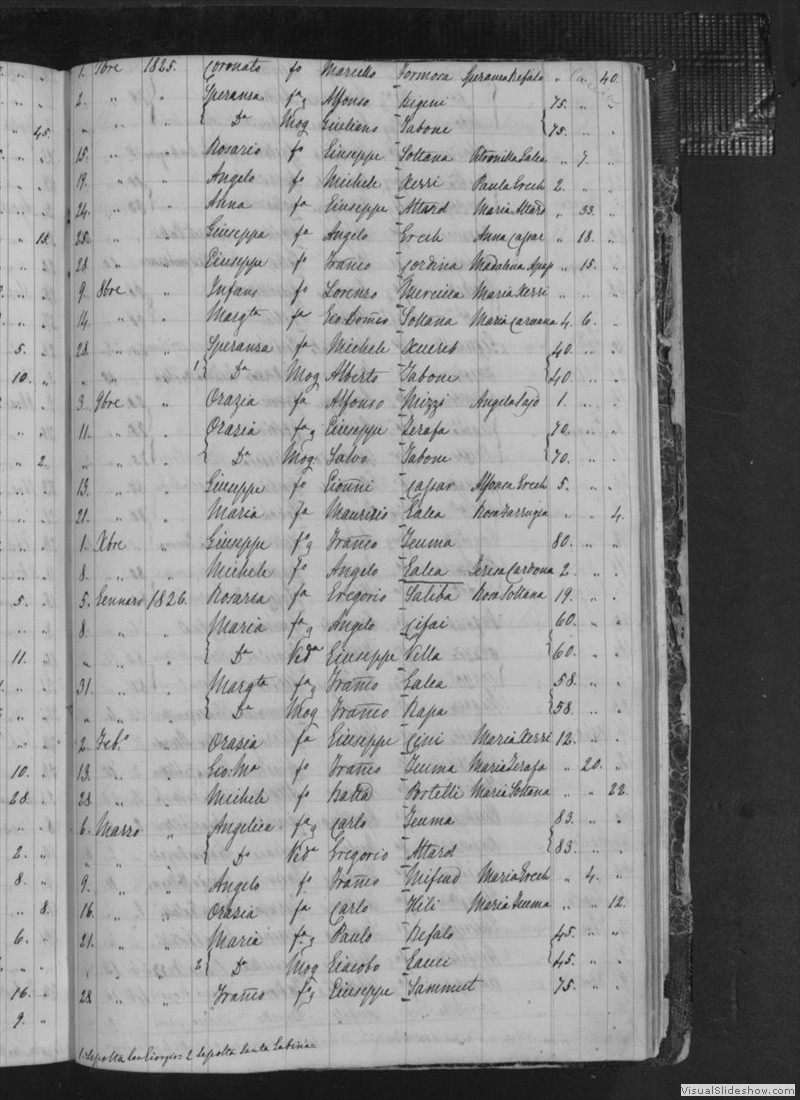 1. 7bre 1825. Coronato fo Marcello Formosa Speranza Refalo " " 40.
2. " " Speranza fa g Alfonso Bigeni 75. " "
45. " { Da Mog Giuliano Tabone { 75. " "
15. " " Rosario fo Giuseppe Soltana Petronilla Galea " 7. "
19. " " Angelo fo Michele Xerri Paula Grech 2. " "
24. " " Anna fa Giuseppe Attard Maria Attard " 33. "
" 15. 25. " " Giuseppa fa Angelo Grech Anna Cassar " 18. "
28. " " Giuseppe fo Franco Cordina Madalena Apap " 15. "
9. 8bre " Infans fo Lorenzo Mercieca Maria Xerri " " "
14. " " Margta fa Gio. Domco Soltana Maria Caruana 4. 6. "
5. 28. " " Speranza fa Michele Xuereb { 40. " "
10. " " " 1 { Da Mog Alberto Tabone { 40. " "
3. 9bre " Orazia fa Alfonso Mizzi Angela Said 1. " "
11. " " Orazia fa g Giuseppe Zerafa { 70. " "
" 2. " " { Da Mog. Salvo Tabone { 70. " "
13. " " Giuseppe fo Gionni Cassar Alfonsa Grech 5. " "
21. " " Maria fa Maurizio Galea Rosa Farrugia " " 4.
1. Xbre " Giuseppe fo g Franco Zeuma 80. " "
8. " " Michele fo Angelo Galea Teresa Cardona 2. " "
5. 5. Gennaro 1826. Rosaria fa Gregorio Saliba Rosa Soltana 19. " "
8. " " Maria fa g Angelo Cifai { 60. " "
11. " " { Da Veda Giuseppe Vella { 60. " "
31. " " Margta fa g Franco Galea { 58. " "
" " { Da Mog Franco Rapa { 58. " "
2. Febo " Orazia fa Giuseppe Cini Maria Xerri 12. " "
10. 13. " " Gio. Ma fo Franco Zeuma Maria Zerafa " 20. "
28. 28. " " Michele fo Batta Portelli Maria Soltana " " 22
6. Marzo " Angelica fa g Carlo Zeuma { 83. " "
2. " " " { Da Veda Gregorio Attard { 83. " "
8. 9. " " Angelo fo Franco Mifsud Maria Grech " 4. "
" 8. 16. " " Orazia fa Carlo Hili Maria Zeuma " " 12.
6. 21. " " Maria fa g Paulo Refalo { 45. " "
" " " 2 { Da Mog Giacobo Gauci { 45. " "
16. 28 " " Franco fo g Giuseppe Sammut 75. " "
9.
1. Sepolta San Giorgio = 2 Sepolta Santa Sabina =
VisualSlideshow.com